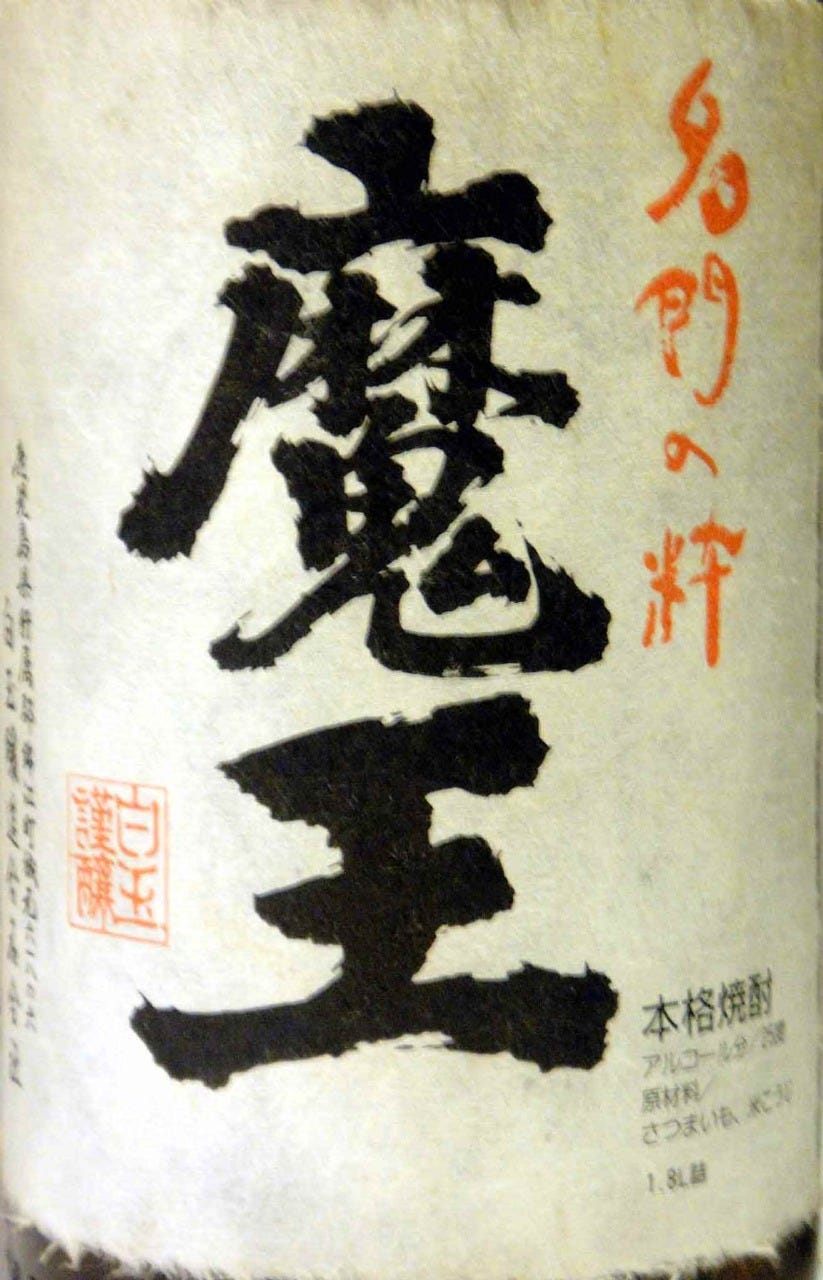 名門の粋
魔王
白玉
謹醸
本格焼酎
アルコール分/25度
原材料/
さつまいも、米こうじ
1.8L詰